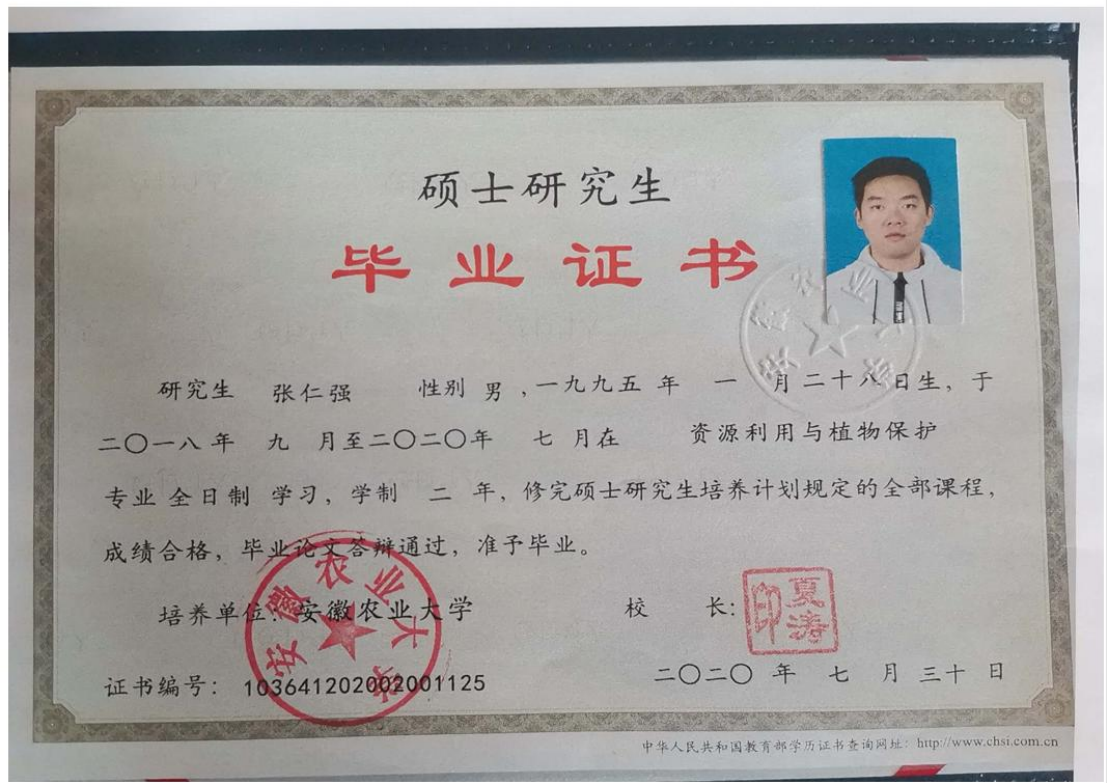 硕士研究生
毕业证书
研究生 张仁强 性别 男 ,一九九五 年 一 月二十八日生, 于
二〇一八年 九 月至二〇二〇年 七 月在 资源利用与植物保护
专业 全日制 学习, 学制 二 年, 修完硕士研究生培养计划规定的全部课程,
成绩合格, 毕业论文答辩通过, 准予毕业。
培养单位: 安徽农业大学 校 长: 夏涛印
安徽农业大学
安徽农业大学
证书编号: 103641202002001125 二〇二〇 年 七 月 三十 日
中华人民共和国教育部学历证书查询网址: http://www.chsi.com.cn